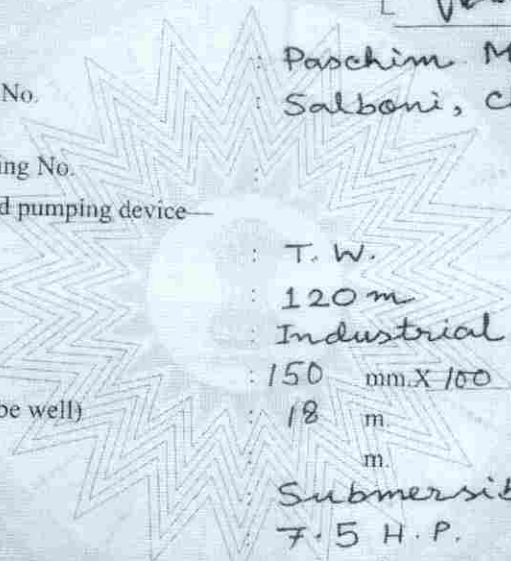 : Paschim M
No. : Salboni, C
ing No. :
d pumping device—
: T. W.
: 120 m
: Industrial
: 150 mm.X 100
be well) : 18 m.
m.
: Submersib
7.5 H.P.